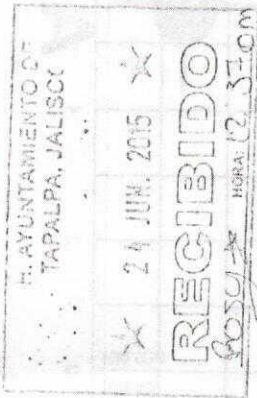 H. AYUNTAMIENTO DE
TAPALPA, JALISCO
24 JUN. 2015
RECIBIDO
HORA: 12:37